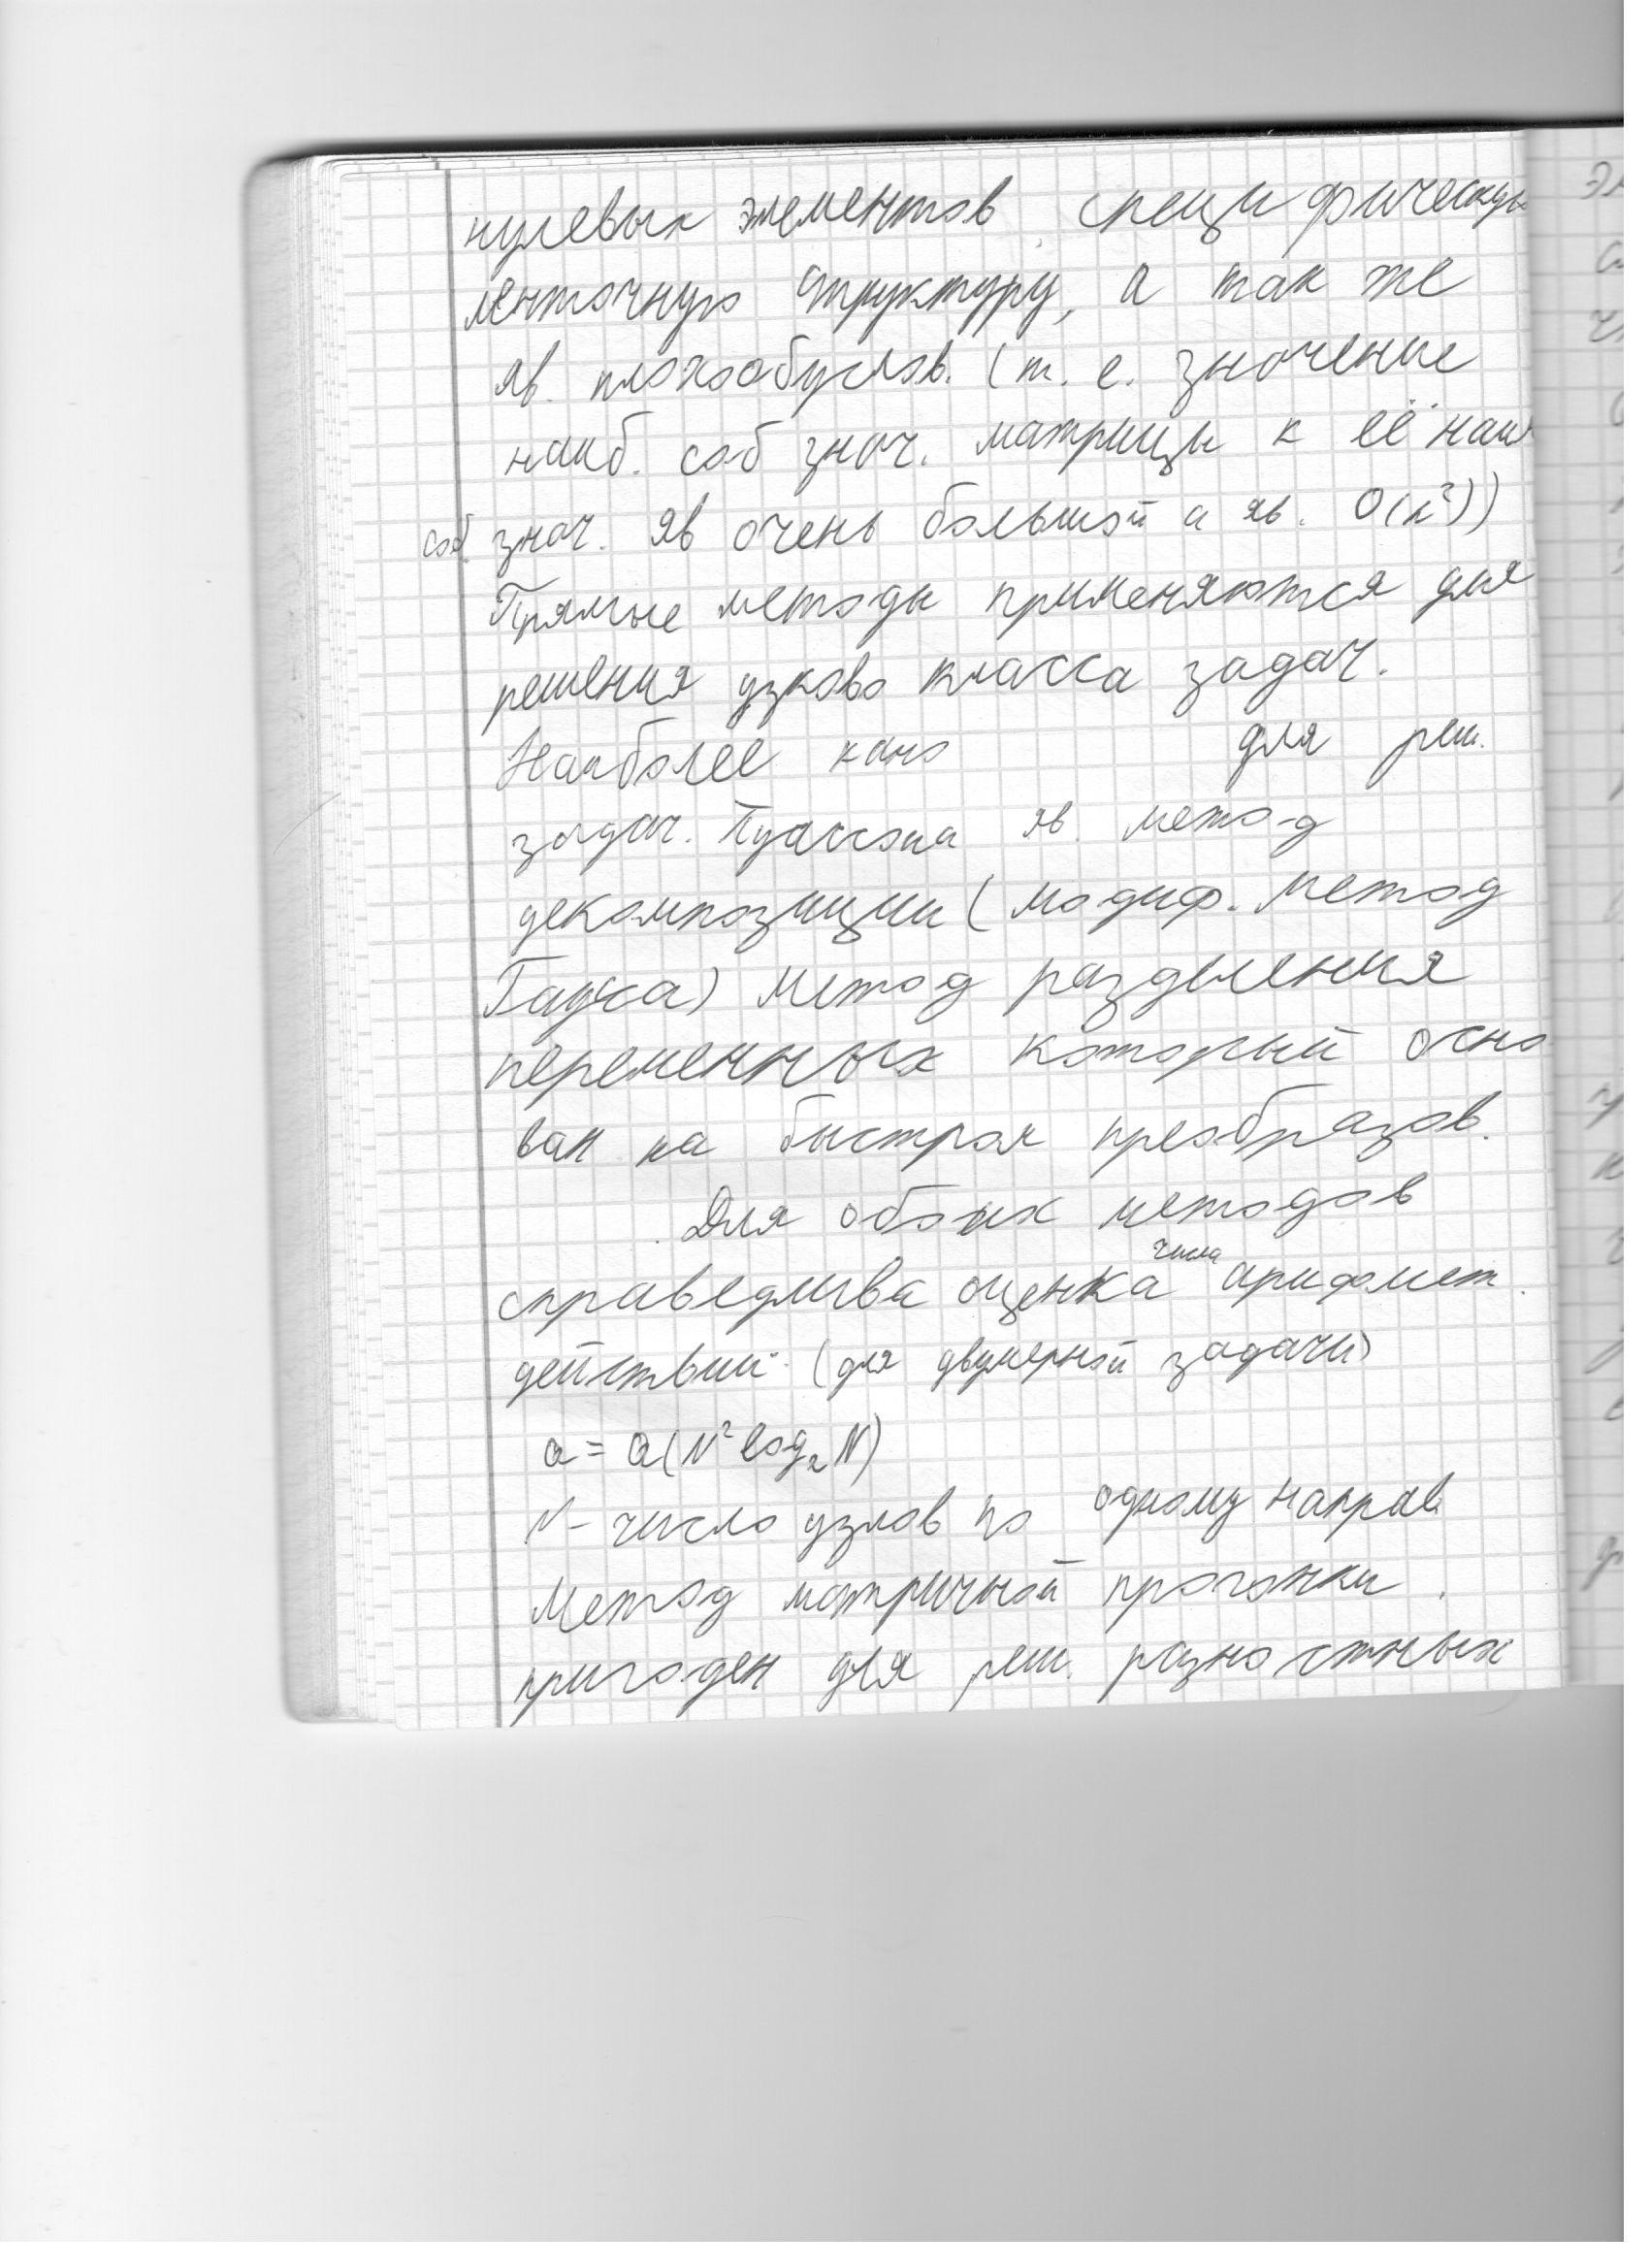 нулевых элементов специфическую
ленточную структуру, а так же
яв. плохообуслов. (т. е. значение
наиб. соб знач. матрицы к её наим
соб. знач. яв очень большой и яв. O(n²))
Прямые методы применяются для
решения узково класса задач.
Наиболее для реш.
задач. Пуассона яв. метод
декомпозиции (модиф. метод
Гауса) метод разделения
переменных который осно
ван на быстром преобразов.
Для обоих методов
справедлива оценка числа арифмет.
действий (для двумерной задачи)
Q = Q(N² log₂N)
N - число узлов по одному направ
Метод матричной прогонки.
пригоден для реш. разностных